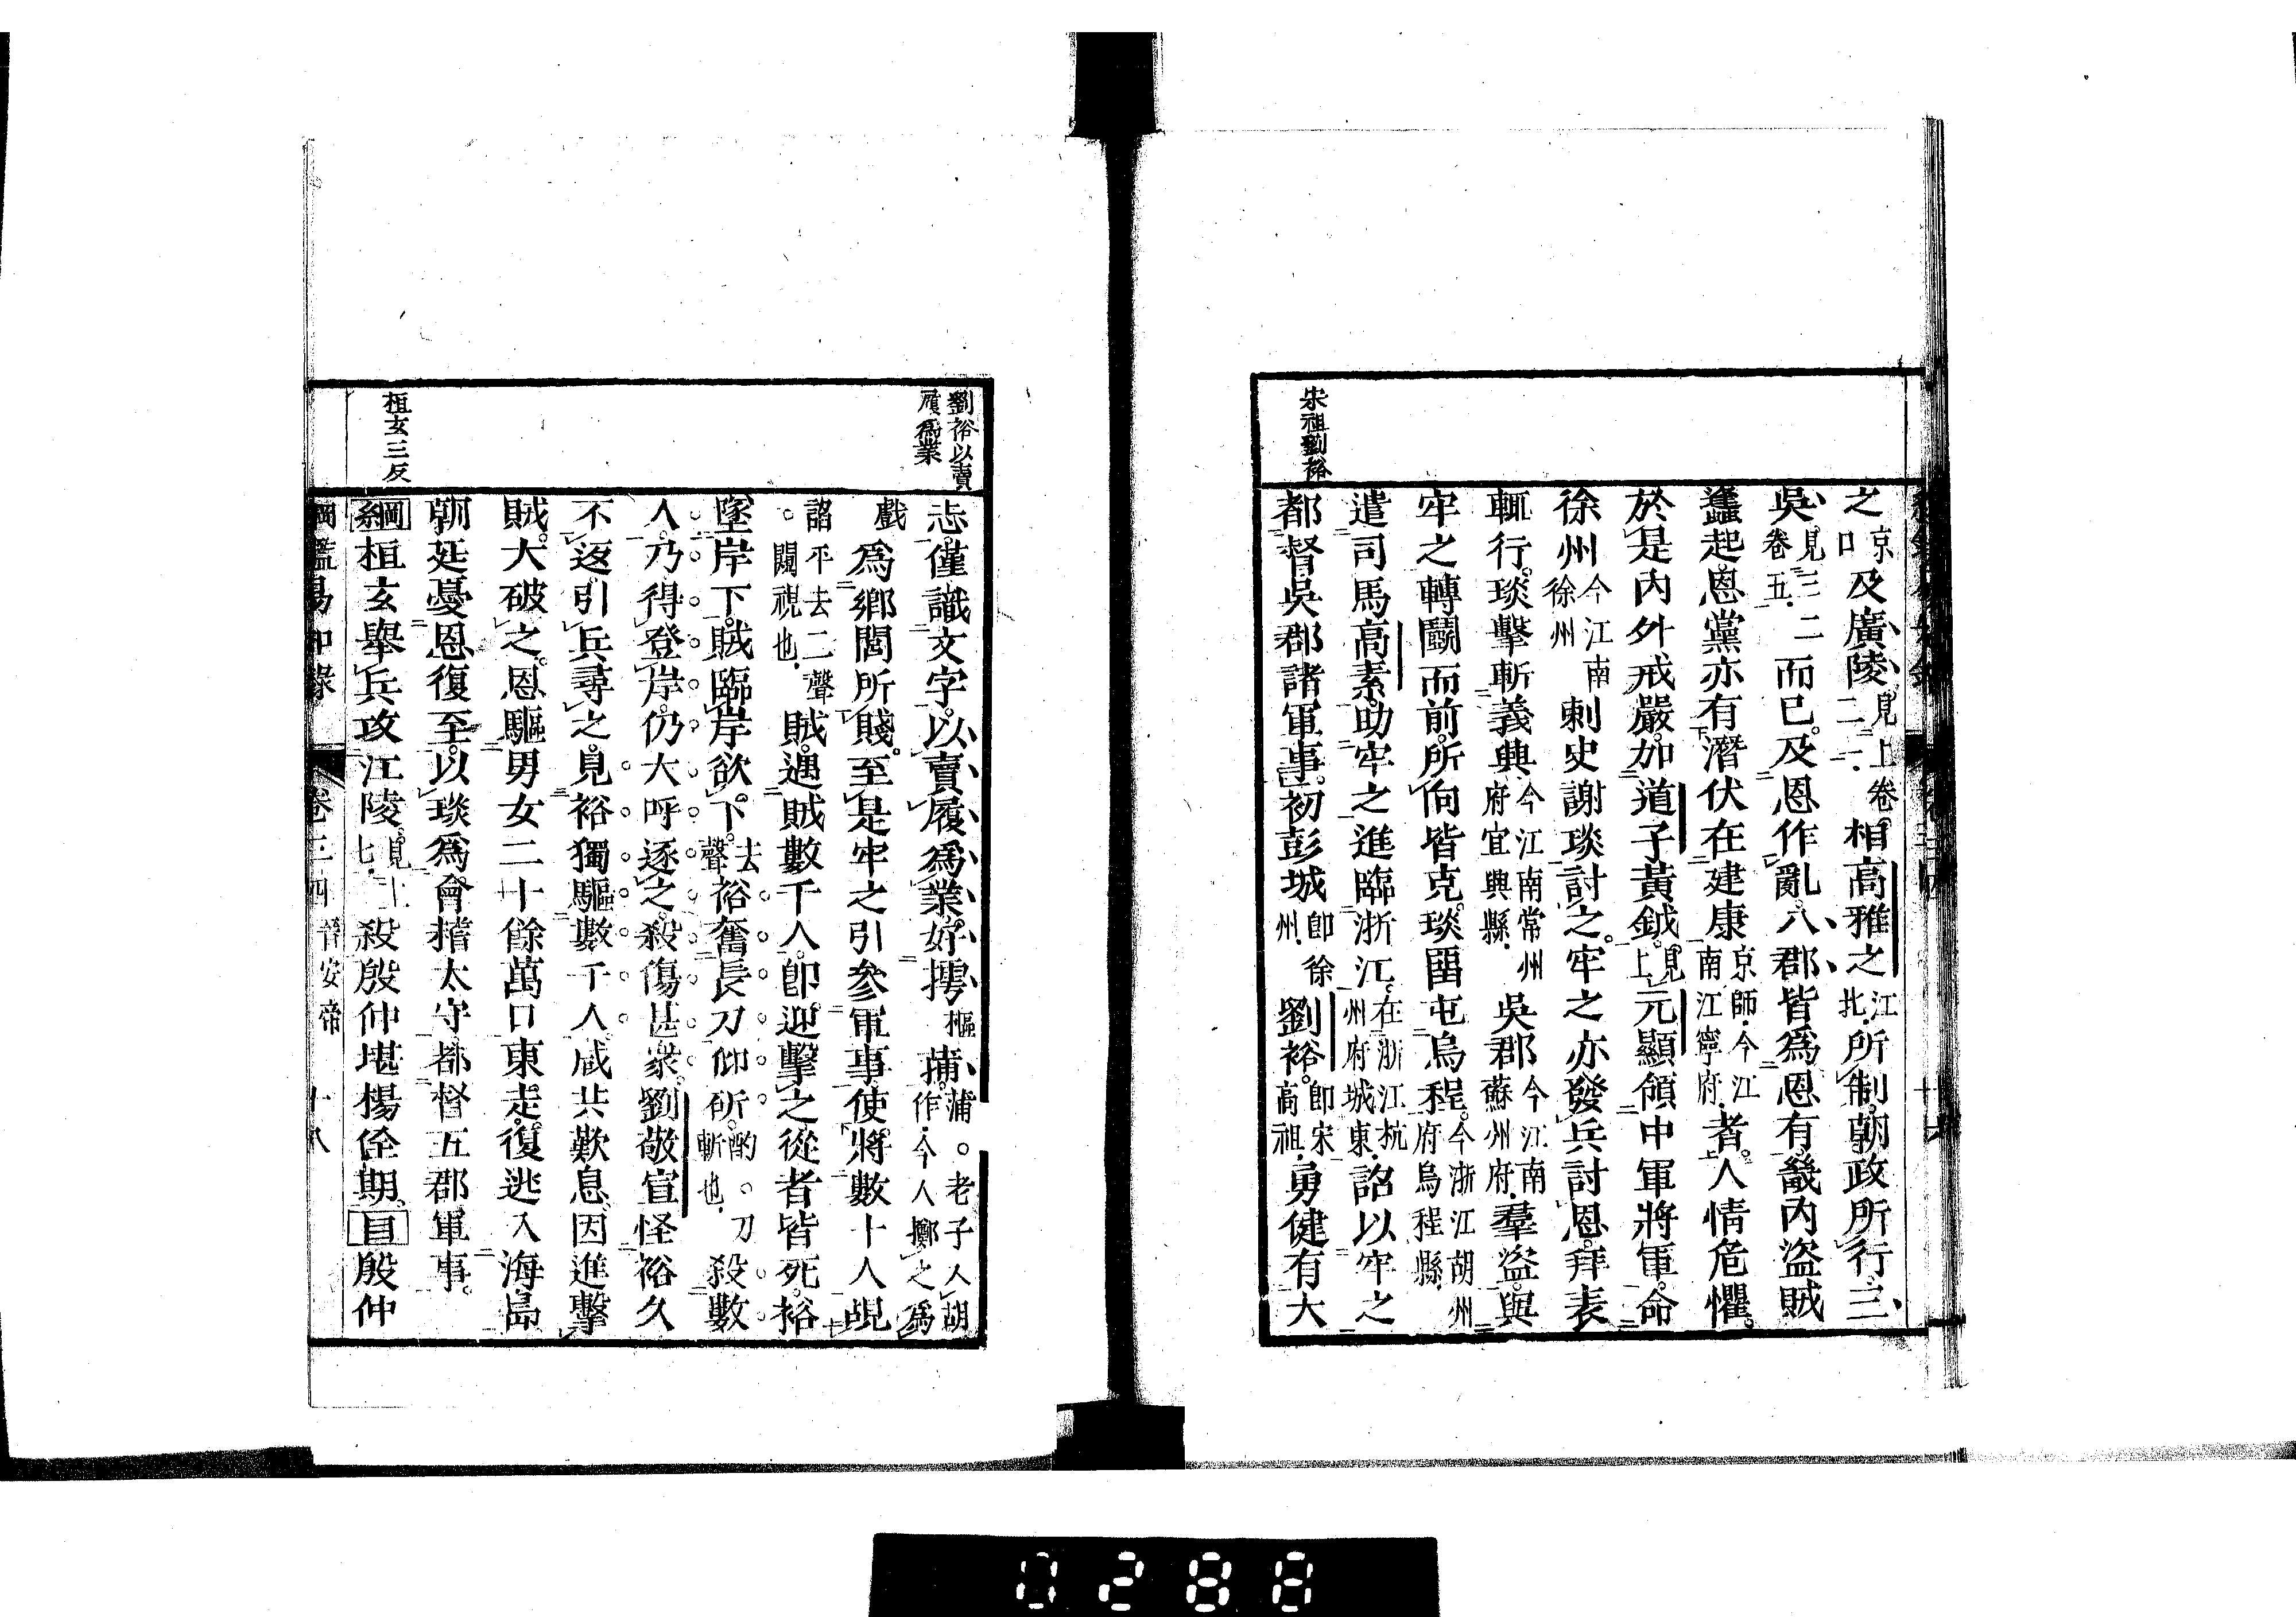 宋祖劉裕
之京口及廣陵見上卷二二相高雅之江北所制朝政所行三
吳見三卷五二而已及恩作亂八郡皆爲恩有畿內盜賊
蠭起恩黨亦有潛伏在建康京師今江南江寧府者人情危懼
於是內外戒嚴加道子黃鉞見上元顯領中軍將軍命
徐州今江南徐州刺史謝琰討之牢之亦發兵討恩拜表
輒行琰擊斬義興今江南常州府宜興縣吳郡今江南蘇州府羣盜與
牢之轉鬭而前所向皆克琰畱屯烏程今浙江湖州府烏程縣
遣司馬高素助牢之進臨浙江在浙江杭州府城東詔以牢之
都督吳郡諸軍事初彭城卽徐州劉裕卽宋高祖勇健有大
劉裕以賣履爲業
志僅識文字以賣履爲業好摴樞蒲蒲。老子入胡作今人擲之爲
戲爲鄉閭所賤至是牢之引參軍事使將數十人覘
諂平去二聲。闚視也賊遇賊數千人卽迎擊之從者皆死裕
墜岸下賊臨岸欲下去聲裕奮長刀仰斫酌。刀斬也殺數
人乃得登岸仍大呼逐之殺傷甚衆劉敬宣怪裕久
不返引兵尋之見裕獨驅數千人咸共歎息因進擊
賊大破之恩驅男女二十餘萬口東走復逃入海島
朝廷憂恩復至以琰爲會稽太守都督五郡軍事
桓玄三反
綱桓玄舉兵攻江陵見上七殺殷仲堪楊佺期目殷仲
綱鑑易知錄 卷三四 晉安帝 十八
0288